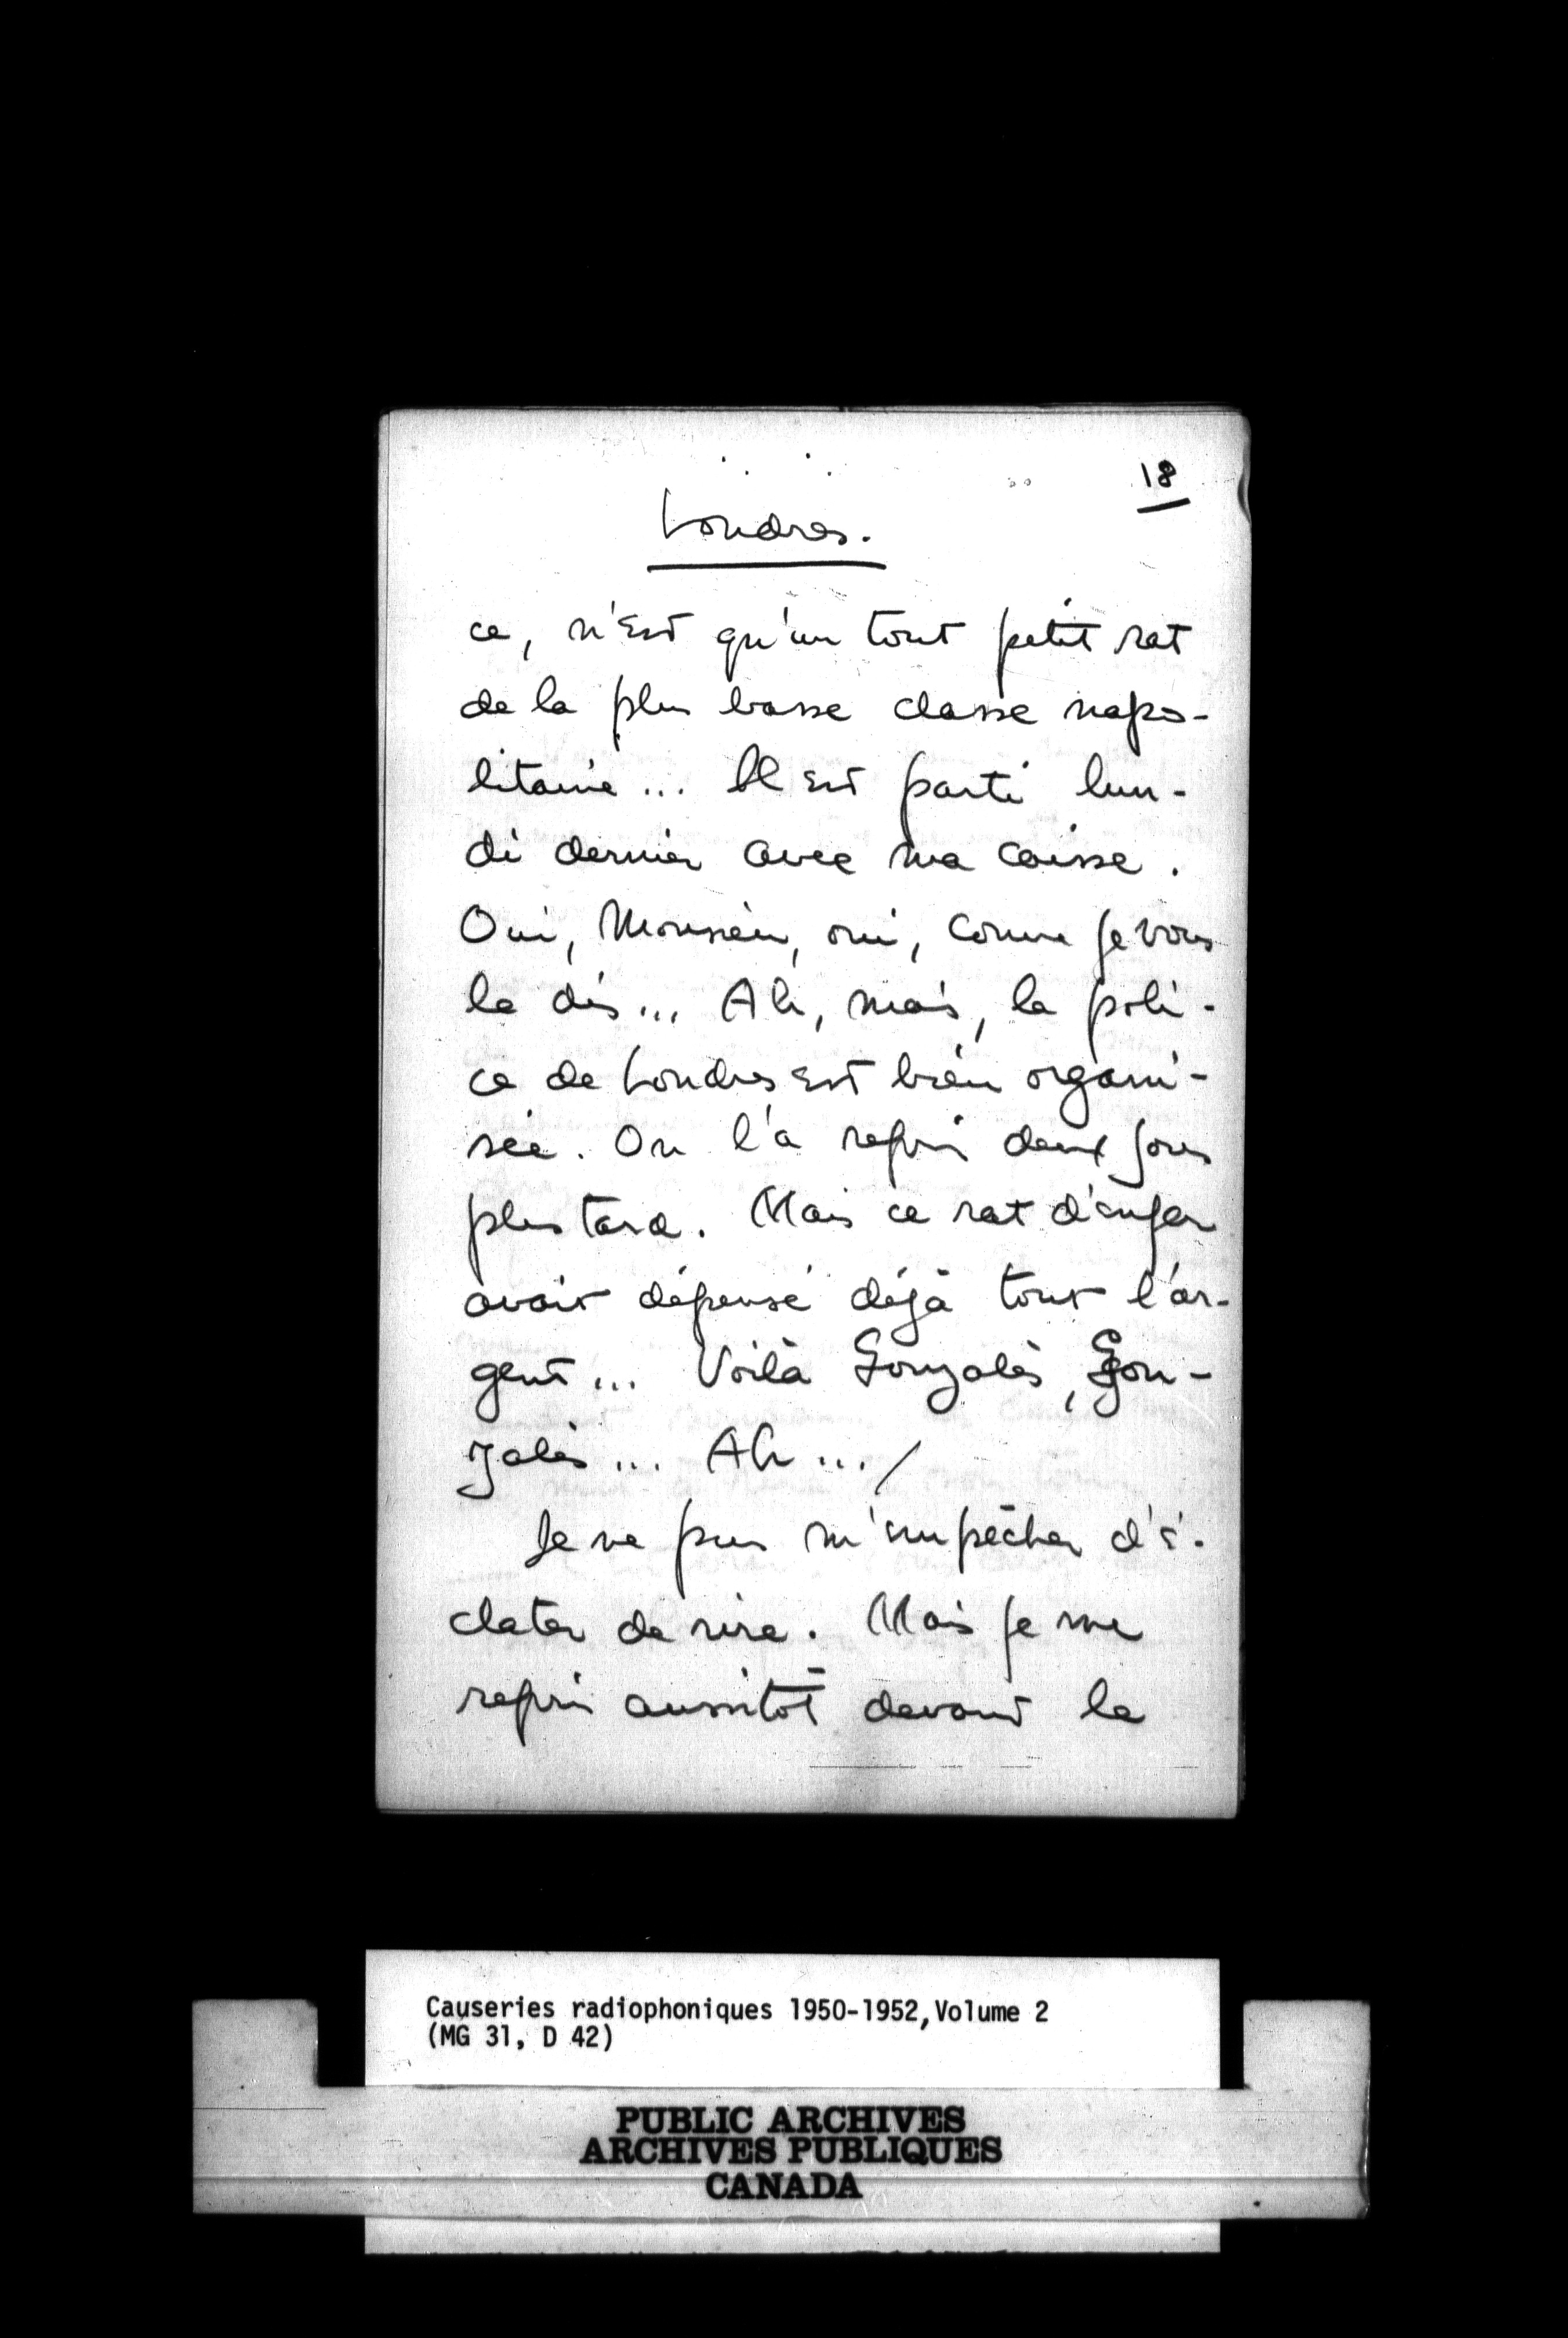 18
Londres.
ce, n'est qu'un tout petit rat
de la plus basse classe napo-
litaine... Il est parti lun-
di dernier avec ma caisse.
Oui, Monsieur, oui, comme je vous
le dis... Ah, mais, la poli-
ce de Londres est bien organi-
sée. On l'a repris deux jours
plus tard. Mais ce rat d'enfer
avait dépensé déjà tout l'ar-
gent... Voilà Gonzalès, Gon-
zalès... Ah... /
Je ne pus m'empêcher d'é-
clater de rire. Mais je me
repris aussitôt devant le
Causeries radiophoniques 1950-1952, Volume 2
(MG 31, D 42)
PUBLIC ARCHIVES
ARCHIVES PUBLIQUES
CANADA